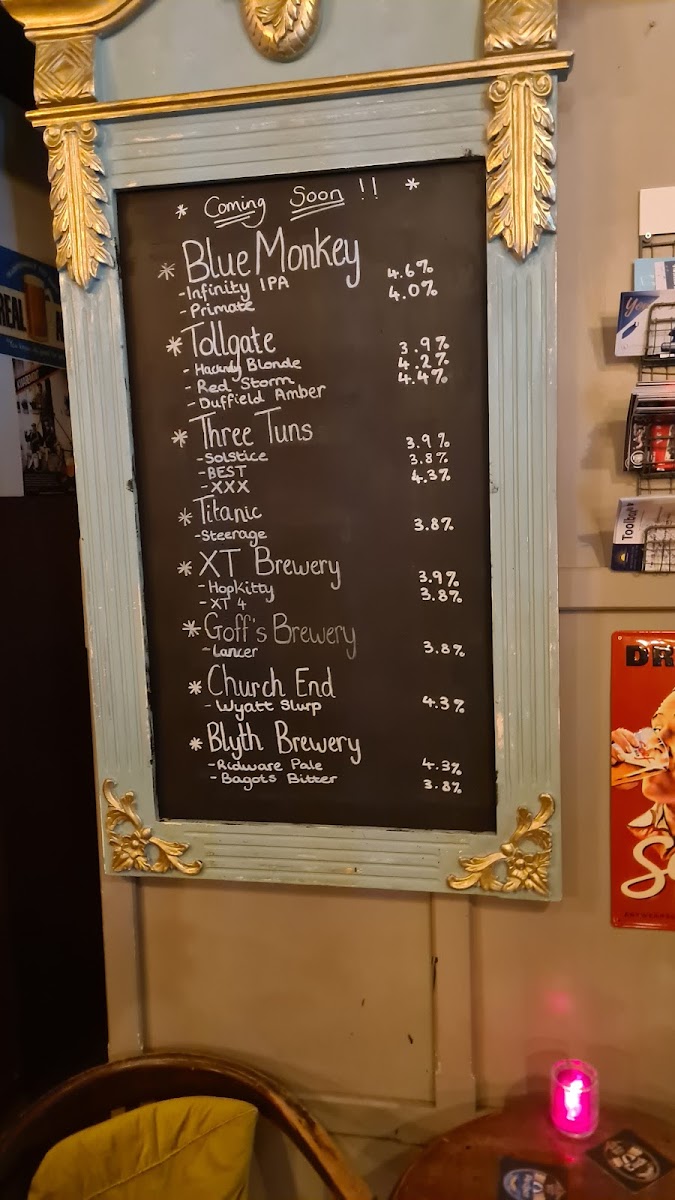 * Coming Soon !! *
* Blue Monkey
-Infinity IPA 4.6%
-Primate 4.0%
* Tollgate
- Hackney Blonde 3.9%
- Red Storm 4.2%
- Duffield Amber 4.4%
* Three Tuns
-Solstice 3.9%
-BEST 3.8%
-XXX 4.3%
* Titanic
-Steerage 3.8%
* XT Brewery
-Hopkitty 3.9%
-XT 4 3.8%
* Goff's Brewery
-Lancer 3.8%
* Church End
- Wyatt Slurp 4.3%
* Blyth Brewery
-Ridware Pale 4.3%
-Bagots Bitter 3.8%
REAL
Toolbox
DR